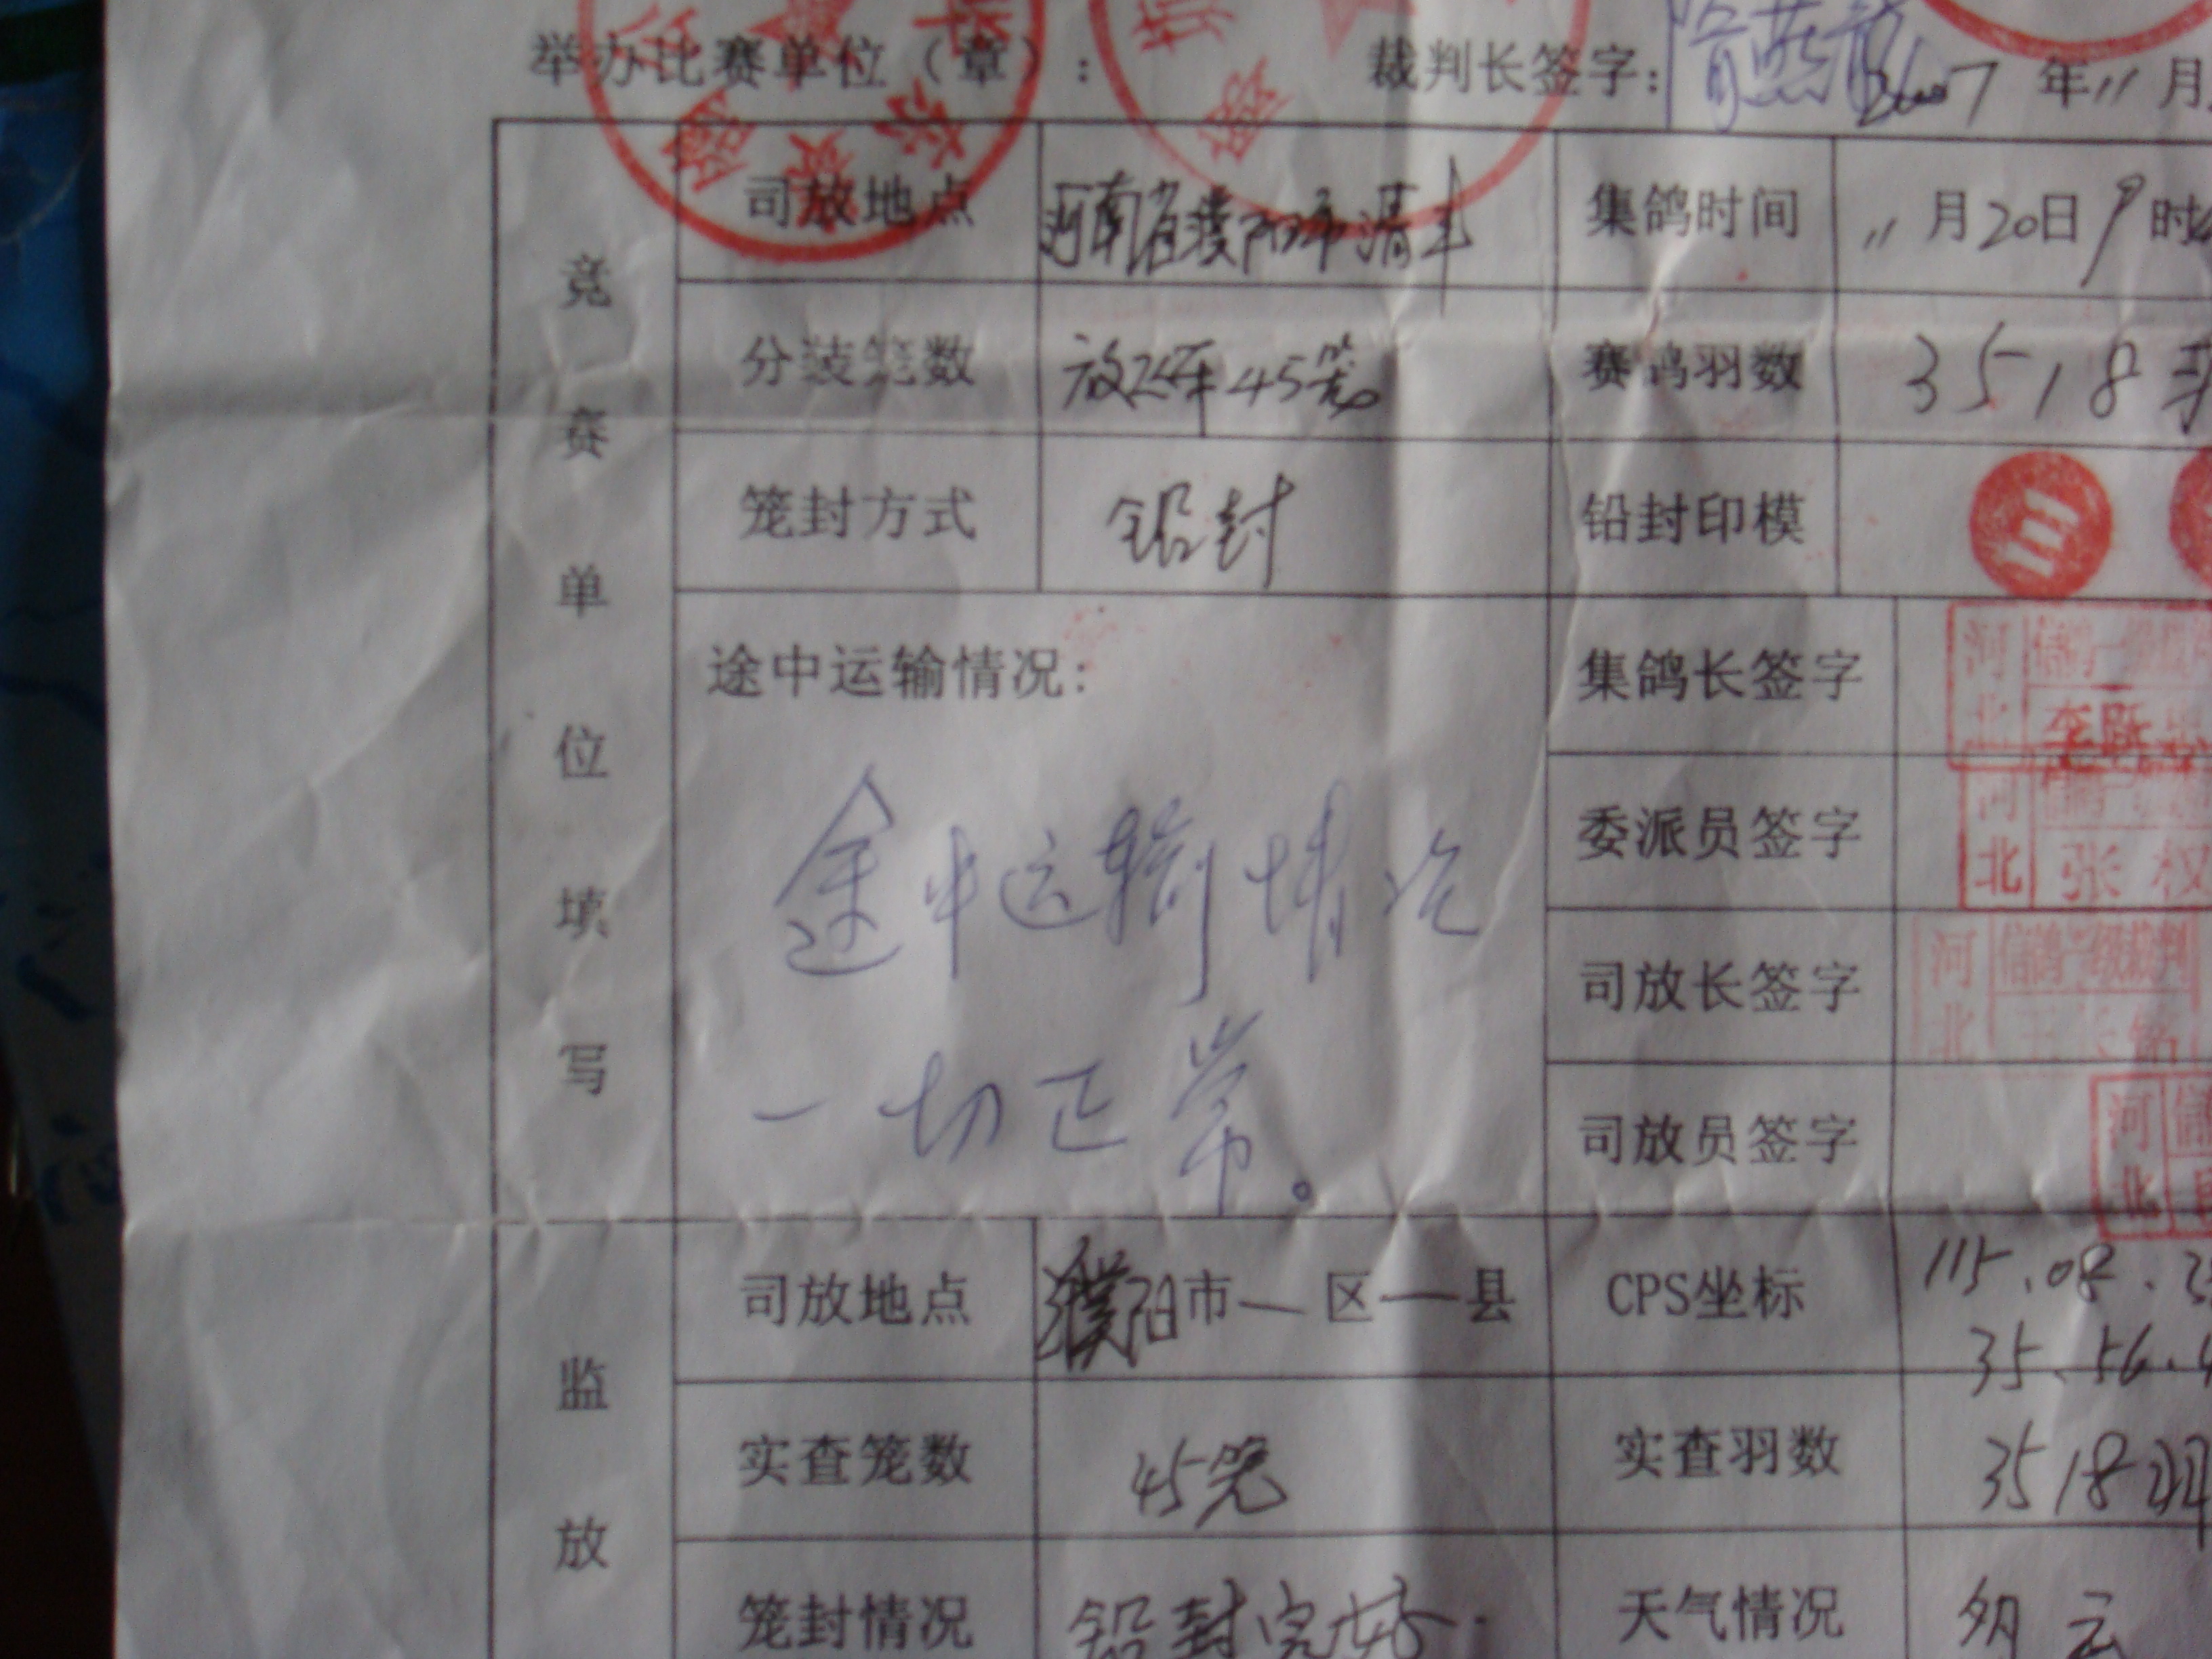 举办比赛单位（章）： 裁判长签字： 2007 年 11 月
竞赛单位填写
司放地点 河南省濮阳市清丰 集鸽时间 11 月 20 日 9 时
分装笼数 45笼 赛鸽羽数 3518
笼封方式 铅封 铅封印模
途中运输情况：
途中运输情况
一切正常。
集鸽长签字 河北
委派员签字 河北 张权
司放长签字 河北 信鸽一级裁判
司放员签字 河北
监放
司放地点 濮阳市—区—县 CPS坐标 115.08.
35.56.
实查笼数 45笼 实查羽数 3518羽
笼封情况 铅封完好. 天气情况 多云